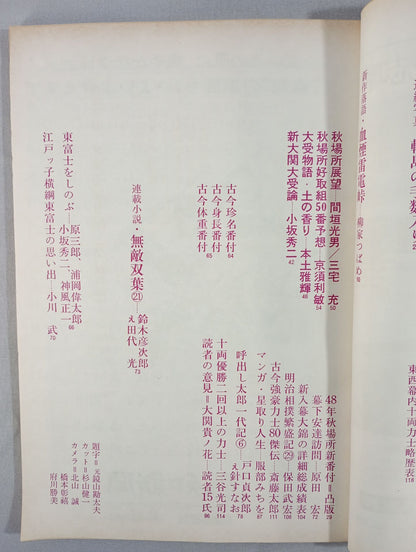 新作落語・血煙雷電峠―柳家つばめ
秋場所展望―間垣光男／三宅 充 50
秋場所好取組50番予想―京須利敏 54
大受物語・土の香り―本土雅輝 48
新大関大受論―小坂秀二 42
古今珍名番付 64
古今身長番付
古今体重番付 65
連載小説・無敵双葉㉑―鈴木彦次郎
え田代 光 73
東富士をしのぶ―原三郎、浦岡偉太郎
小坂秀二、神風正一 66
江戸ッ子横綱東富士の思い出―小川 武 70
東西幕内十両力士略歴表 118
48年秋場所新番付＝凸版 29
幕下安達訪問―原田 宏 72
新入幕大錦の詳細総成績表 109
明治相撲繁盛記㉙―保田武宏 106
古今強豪力士80傑伝―斎藤太郎 111
マンガ・星取り人生―服部みちを 87
呼出し太郎一代記⑥―戸口貞次郎
え針すなお 78
十両優勝二回以上の力士―三谷光司 114
読者の意見＝大関貴ノ花―読者15氏 96
題字＝元鏡山勘太夫
カット＝杉山健一
カメラ＝北山 誠
橋本彰縞
府川勝美